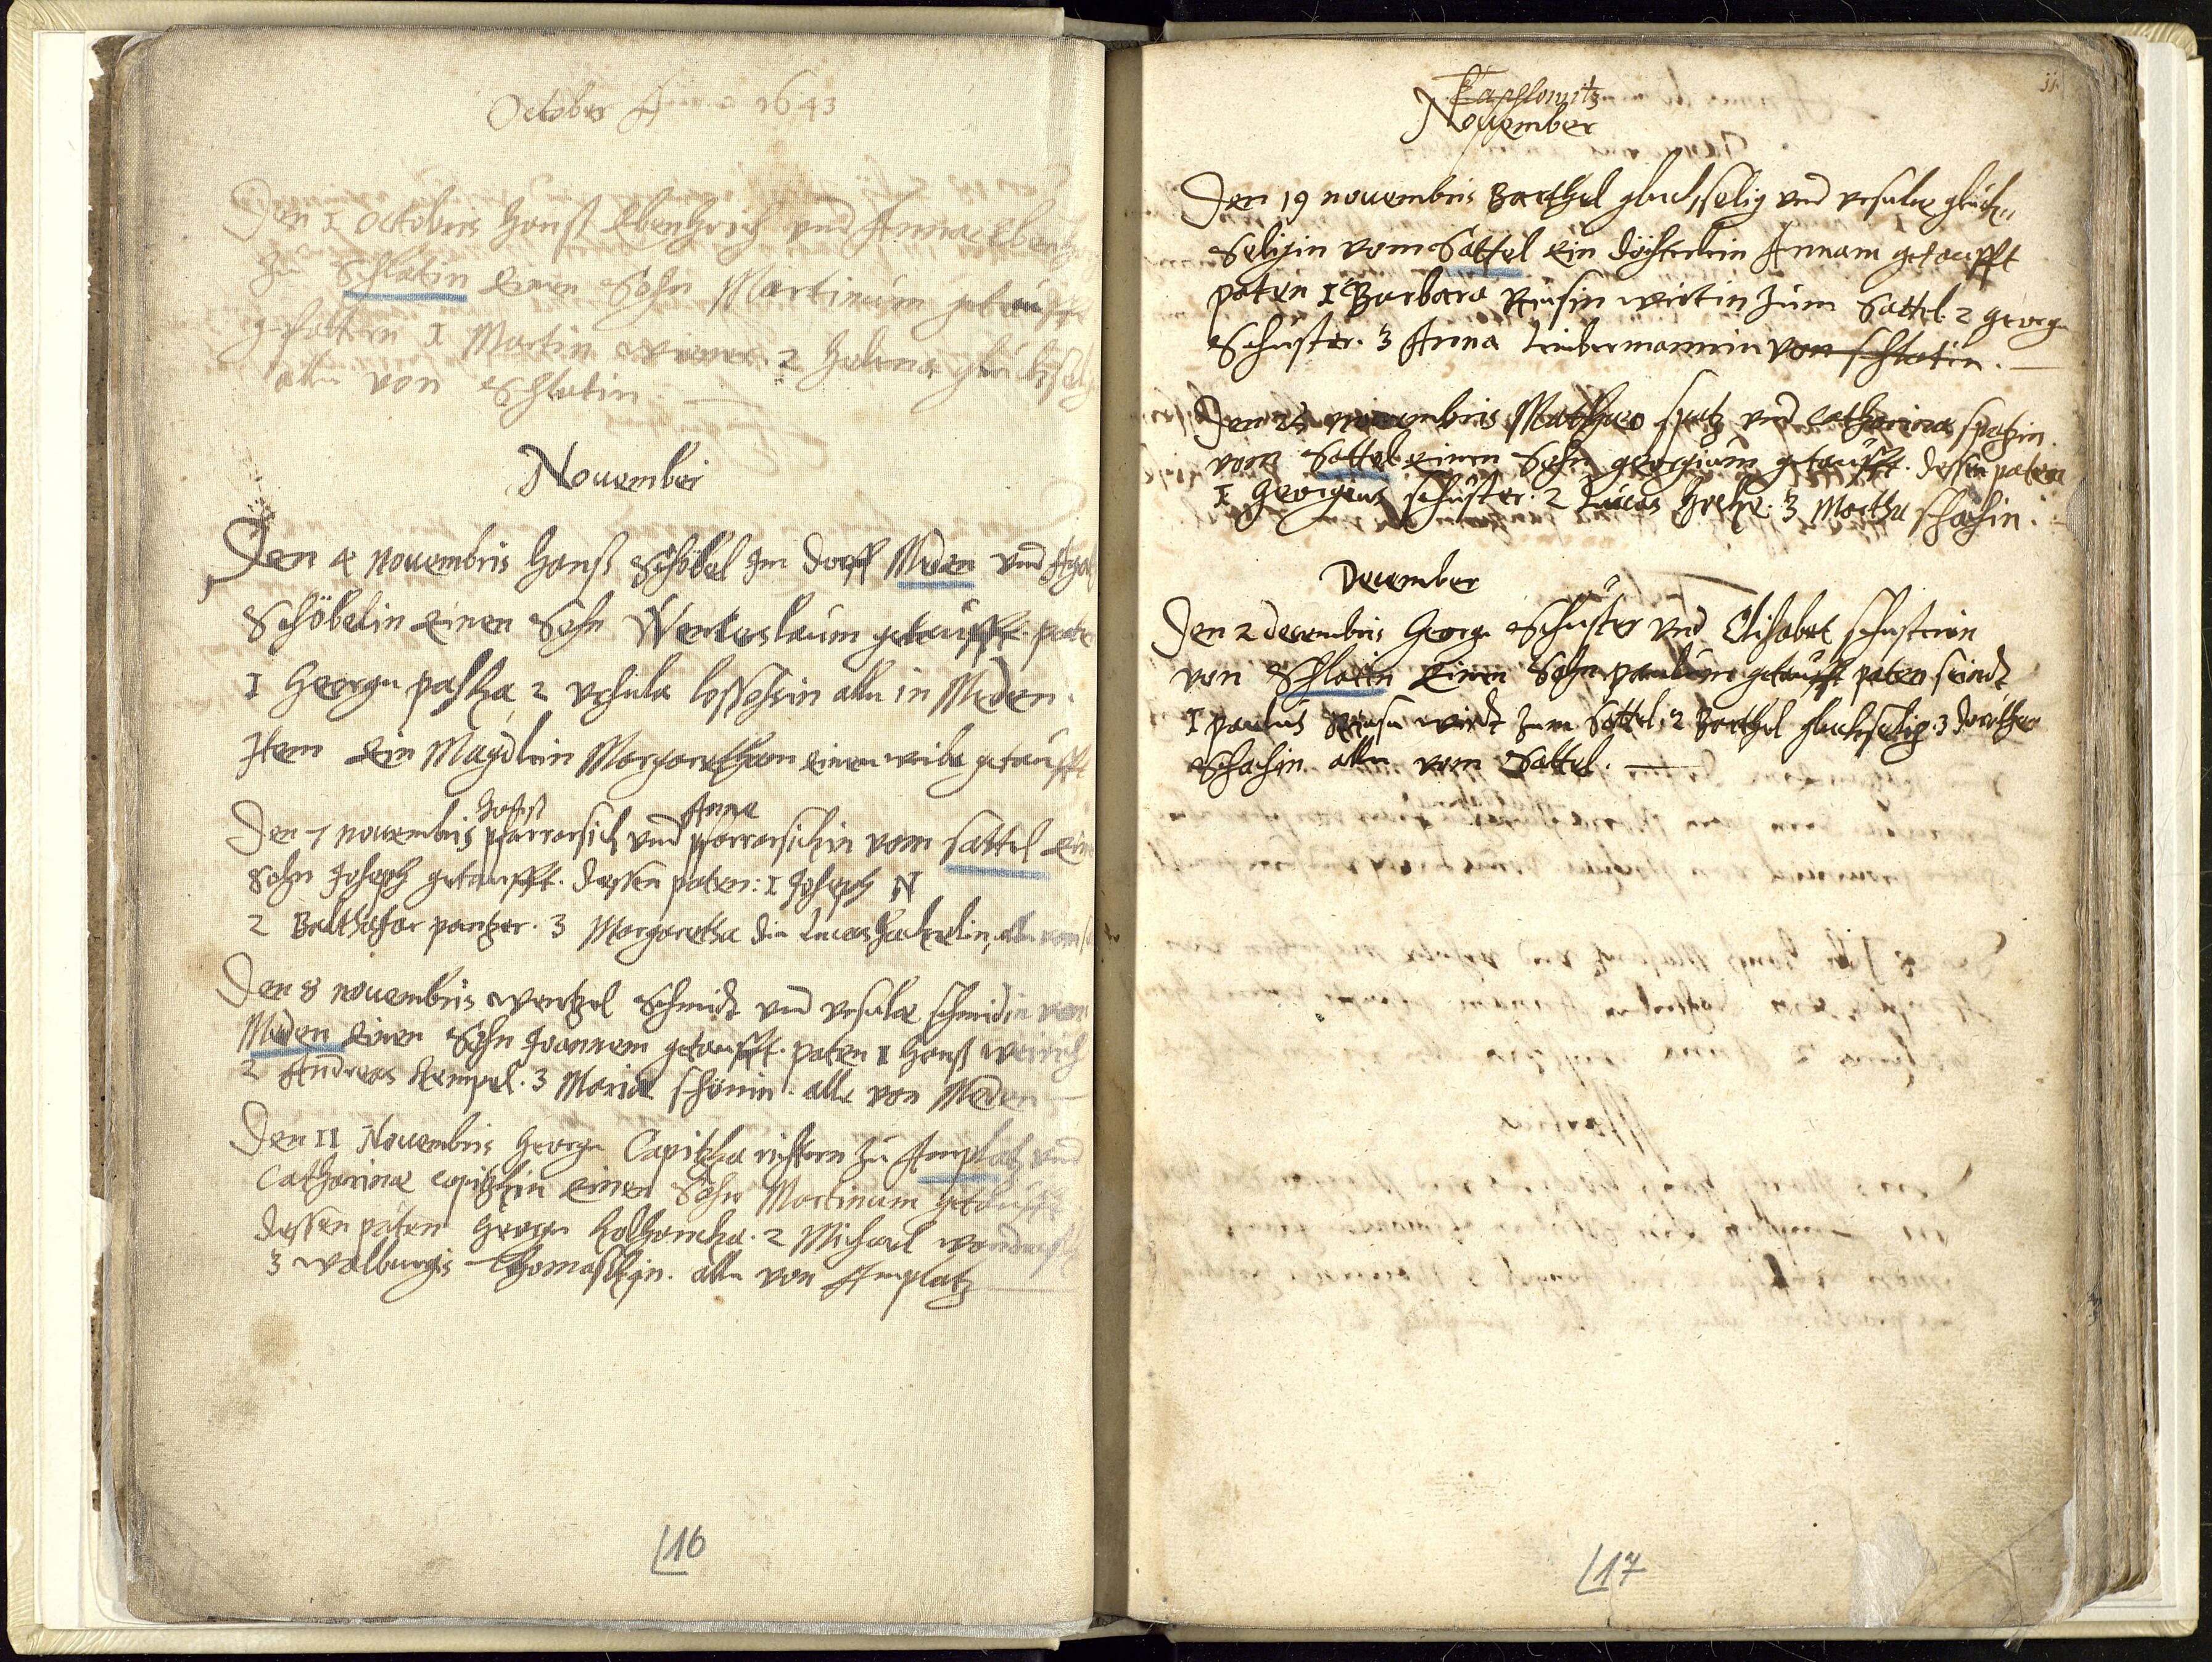 October Anno 1643
Den 1 octobris Hanß Ebenhrich und Anna
Zu Schlatin einen Sohn Martinum getaufft
gefattern 1 Martin wiener. 2 Helena
alle von Schlatin
November
Den 4 novembris Hanß Schöbel Im dorff Meden und
Schöbelin einen Sohn Wenteslaum getaufft. pate
1 George pascha 2 Vrsula alle in Meden.
Item ein Magdlein Margaretham einem weibe getaufft
Hanß Anna
Den 7 novembris und vom sattel ein
Sohn Joseph getaufft. dessen paten: 1 Joseph N
2 Balthasar pantzer. 3 Margaretha die Lucas alle vom
Den 8 novembris wentzel Schmidt und vrsula schmidin von
Meden einen Sohn Joannem getaufft. paten 1 Hanß weirich
2 Andreas Kempel. 3 Maria schönin. alle von Meden
Den 11 Novembris George Capitzka richtern zu Amplatz und
Catharina capitzkin einen Sohn Martinum getaufft
dessen paten George 2 Michael
3 walburgis alle von Amplatz
16
Taschlowitz
November
Den 19 novembris Barthel gluckselig und vrsula gluck„
Seligin vom Sattel ein döchterlein Annam getaufft
paten 1 Barbara wirtin zum Sattel. 2 george
Schuster. 3 Anna von schlatin.
Den 25 novembris Mathaeo spatz und catharina spatzin
vom Sattel einen Sohn georgium getaufft. dessen paten
1 Georgius schuster. 2 Lucas 3 Martha schachin.
December
Den 2 decembris George Schuster und Elisabet schusterin
von Schlatin Einen Sohn paulum getaufft paten seindt
1 paulus wirdt zum Sattel. 2 Barthel gluckselig. 3 dorothea
Schachin alle vom Sattel.
17